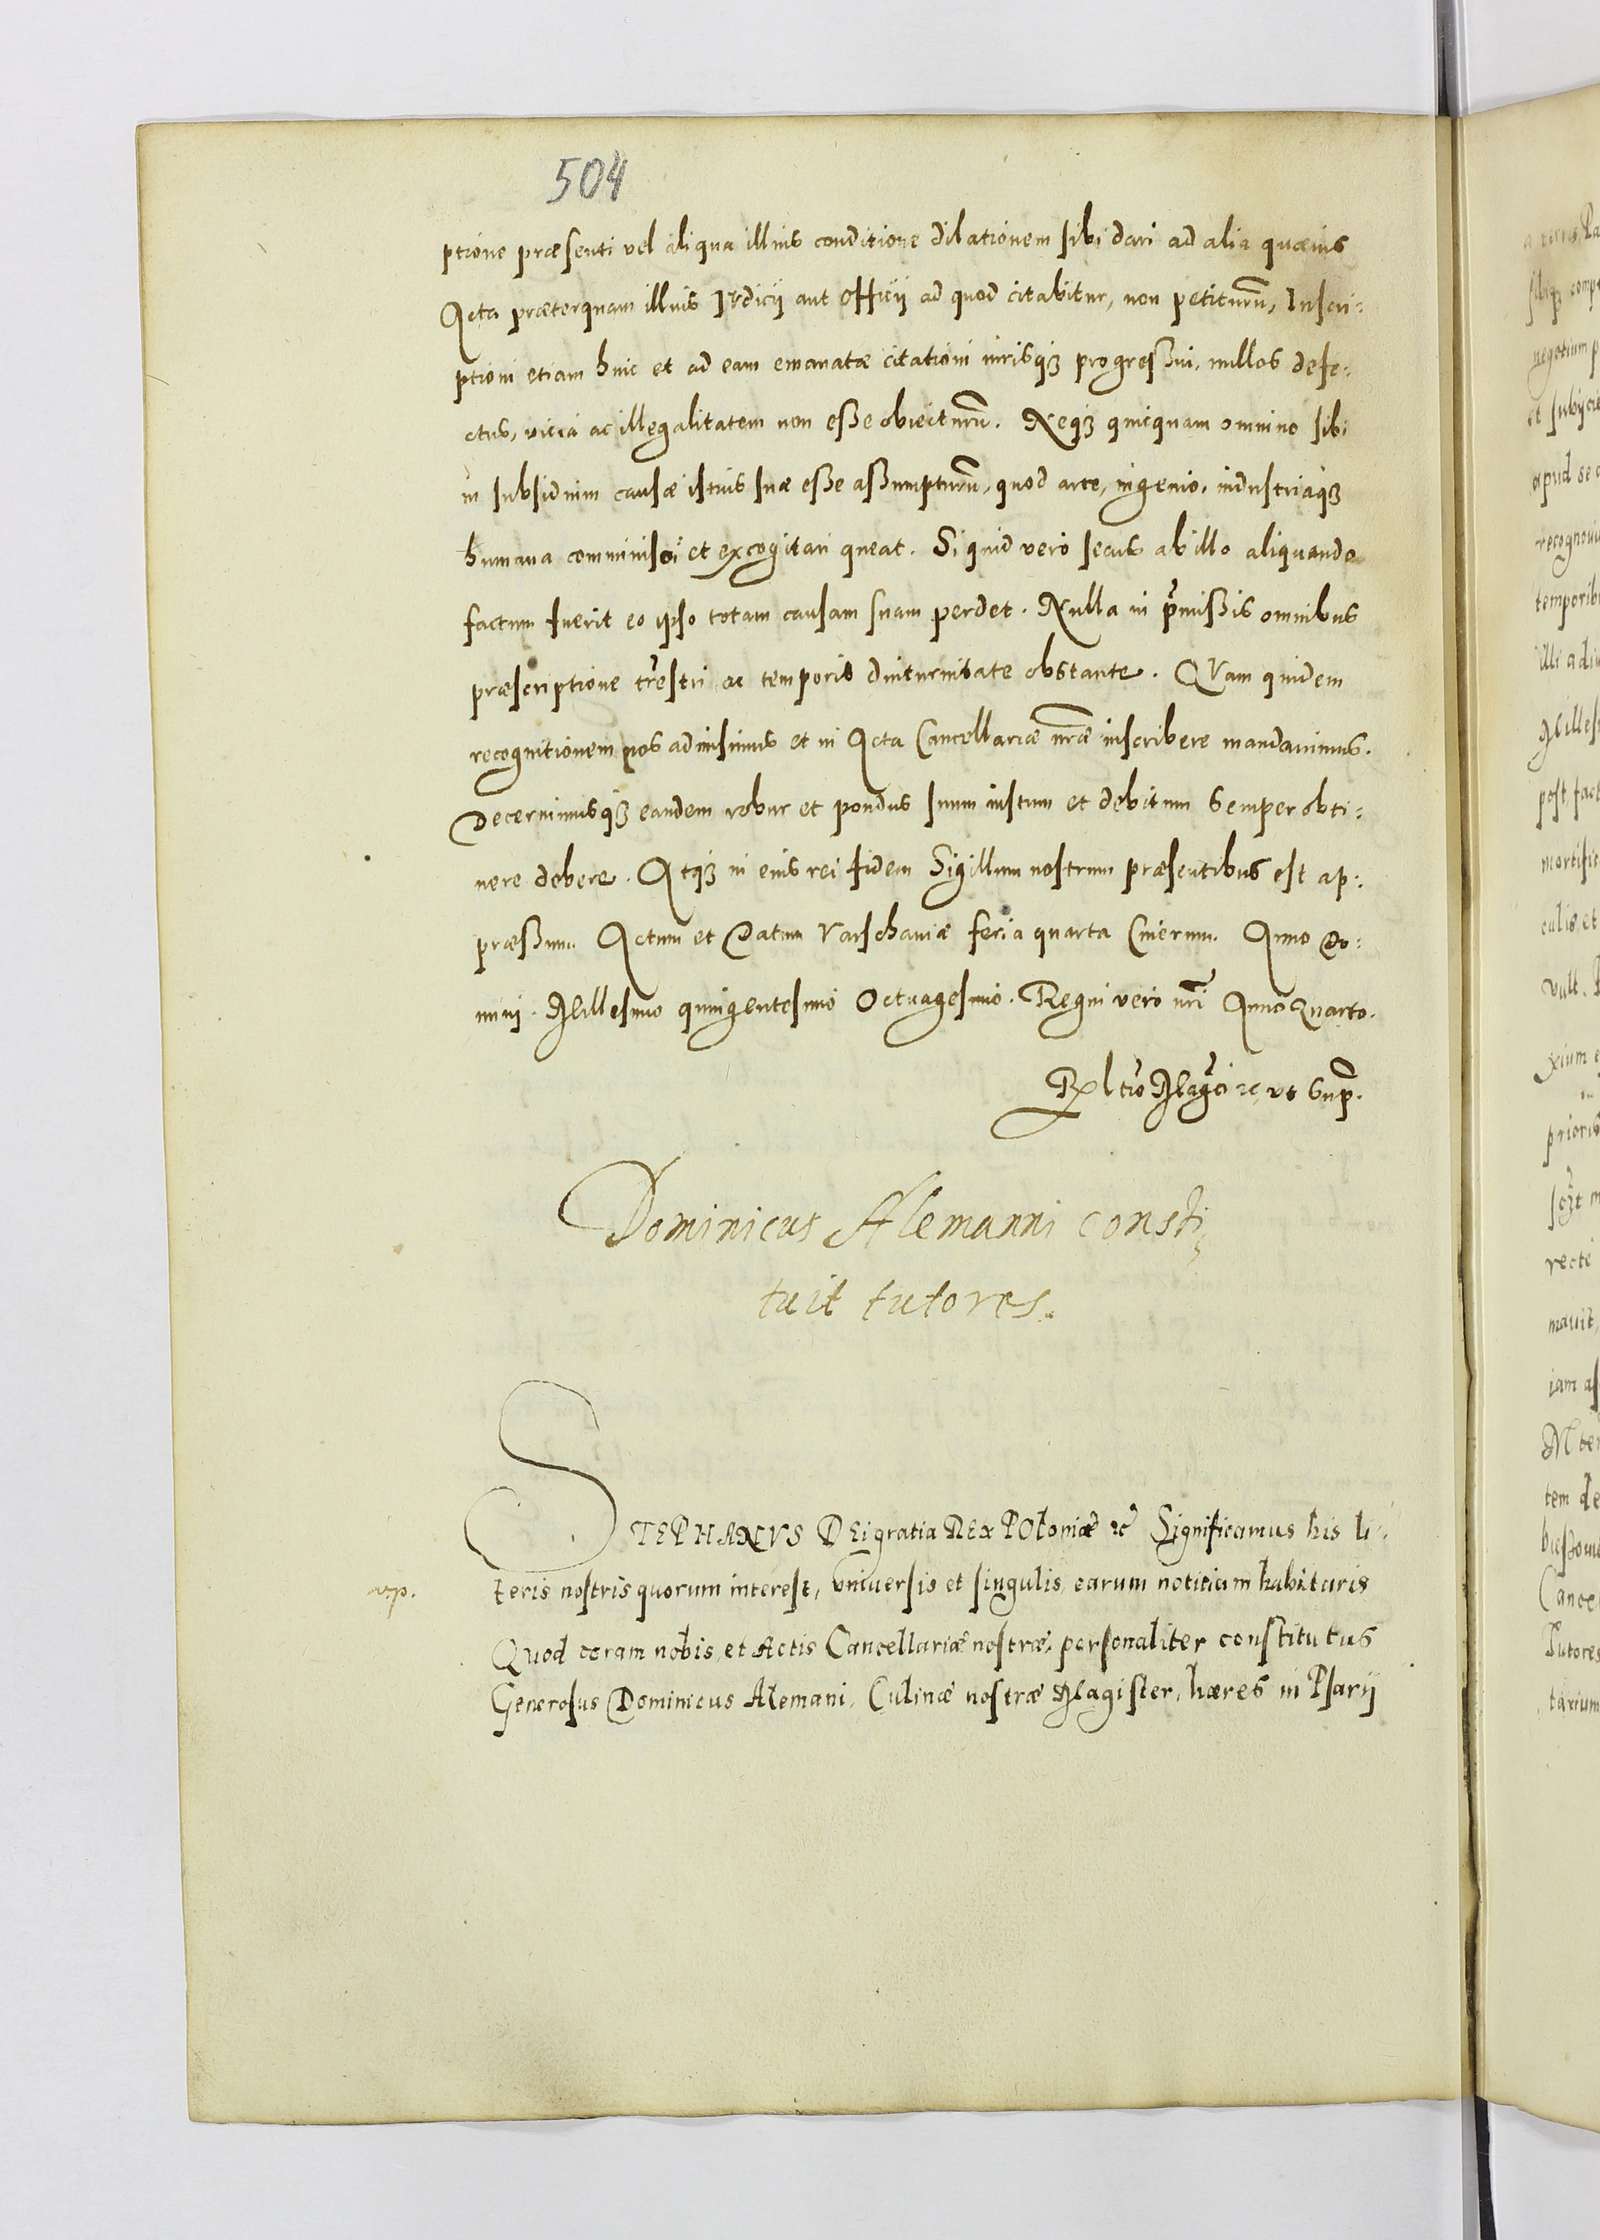 504
ptione præsenti vel aliqua illius conditione dilationem sibi dari ad alia quævis
Acta præterquam illuis Iudicij aut officij ad quod citabitur, non petiturũ, Inscri:
ptioni etiam huic et ad eam emanatæ citationi iurisqȝ progressui, nullos defe:
ctus, vicia ac illegalitatem non esse obiecturũ. Neqȝ quicquam omnino sibi
in subsidium causæ istius suæ esse assumpturũ, quod arte, ingenio, industriaqȝ
humana comminisci et excogitari queat. Si quid vero secus ab illo aliquando
factum fuerit eo ipso totam causam suam perdet. Nulla in p̃missis omnibus
præscriptione tr̃estri ac temporis diuturnitate obstante. QVam quidem
recognitionem nos admisimus et in Acta Cancellariæ nr̃æ inscribere mandauimus.
Decernimusqȝ eandem robur et pondus suum iustum et debitum Semper obti:
nere debere. Atqȝ in eius rei fidem Sigillum nostrum præsentibus est ap:
præssum. Actum et Datum Varschauiæ feria quarta Cinerum. Anno Do:
mini. Millesimo quingentesimo Octuagesimo. Regni vero nr̃i Anno Quarto.
ut Sup̃.
Dominicus Alemanni consti
tuit tutores.
STEPHANVS DEi gratia REx POloniæ ꝛc̃ Significamus his li:
teris nostris quorum interest, vniuersis et singulis, earum notitiam habituris
Quod coram nobis, et Actis Cancellariæ nostræ, personaliter constitutus
Generosus Dominicus Alemani, Culinæ nostræ Magister, hæres in Psarij